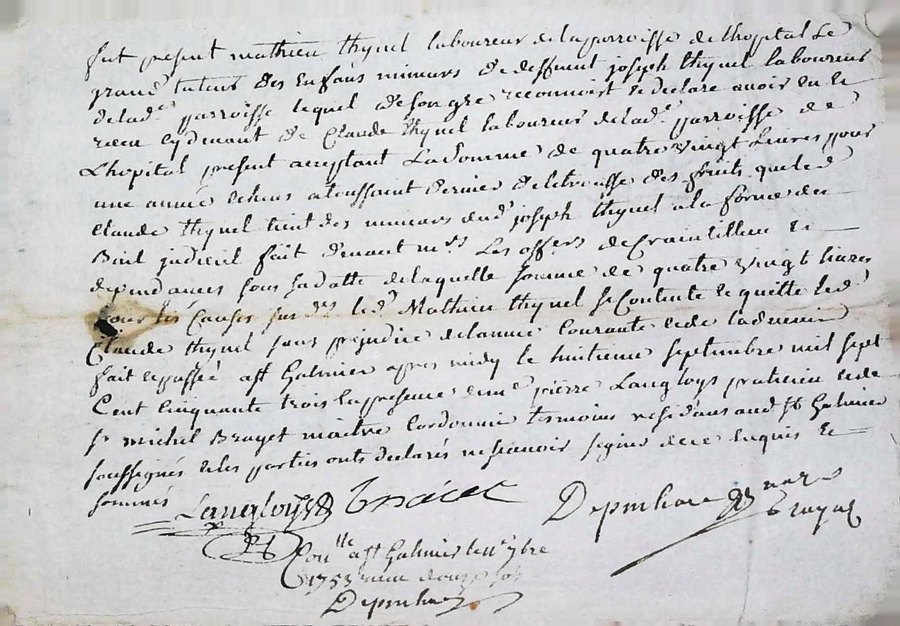 fut present mathieu thynel laboureur de la parroisse de Lhopital Le
grand tuteur des enfans mineurs de deffunt joseph thynel laboureur
de lad.e parroisse lequel de son gre reconnoist et declare avoir eu et
receu cydevant de Claude thynel laboureur de lad.e parroisse de
Lhopital present acceptant La somme de quatre vingt Livres pour
une année echue a toussaint dernier de des fruits que led
Claude thynel tient des mineurs dud. joseph thynel a la forme du
Bail judiciel fait devant mrs Les offers de Craintilleu et
dependances sous sa datte de laquelle somme de quatre vingt livres
pour les Causes sus d. le d. Mathieu thynel se Contente et quitte led
Claude thynel sans prejudice de lannée Courante et de
fait et passée a st Galmier apres midy le huitieme septembre mil sept
Cent Cinquante trois En presence de me pierre Langloys praticien et de
sr michel Brayet maitre Cordonnier temoins residans aud st Galmier
soussignés et les parties ont declarés ne scavoir signer de ce enquis et
sommés
Langloys
Depunhac
Con.lle a st Galmier le 7bre
1753 receu douze sols
Depunhac